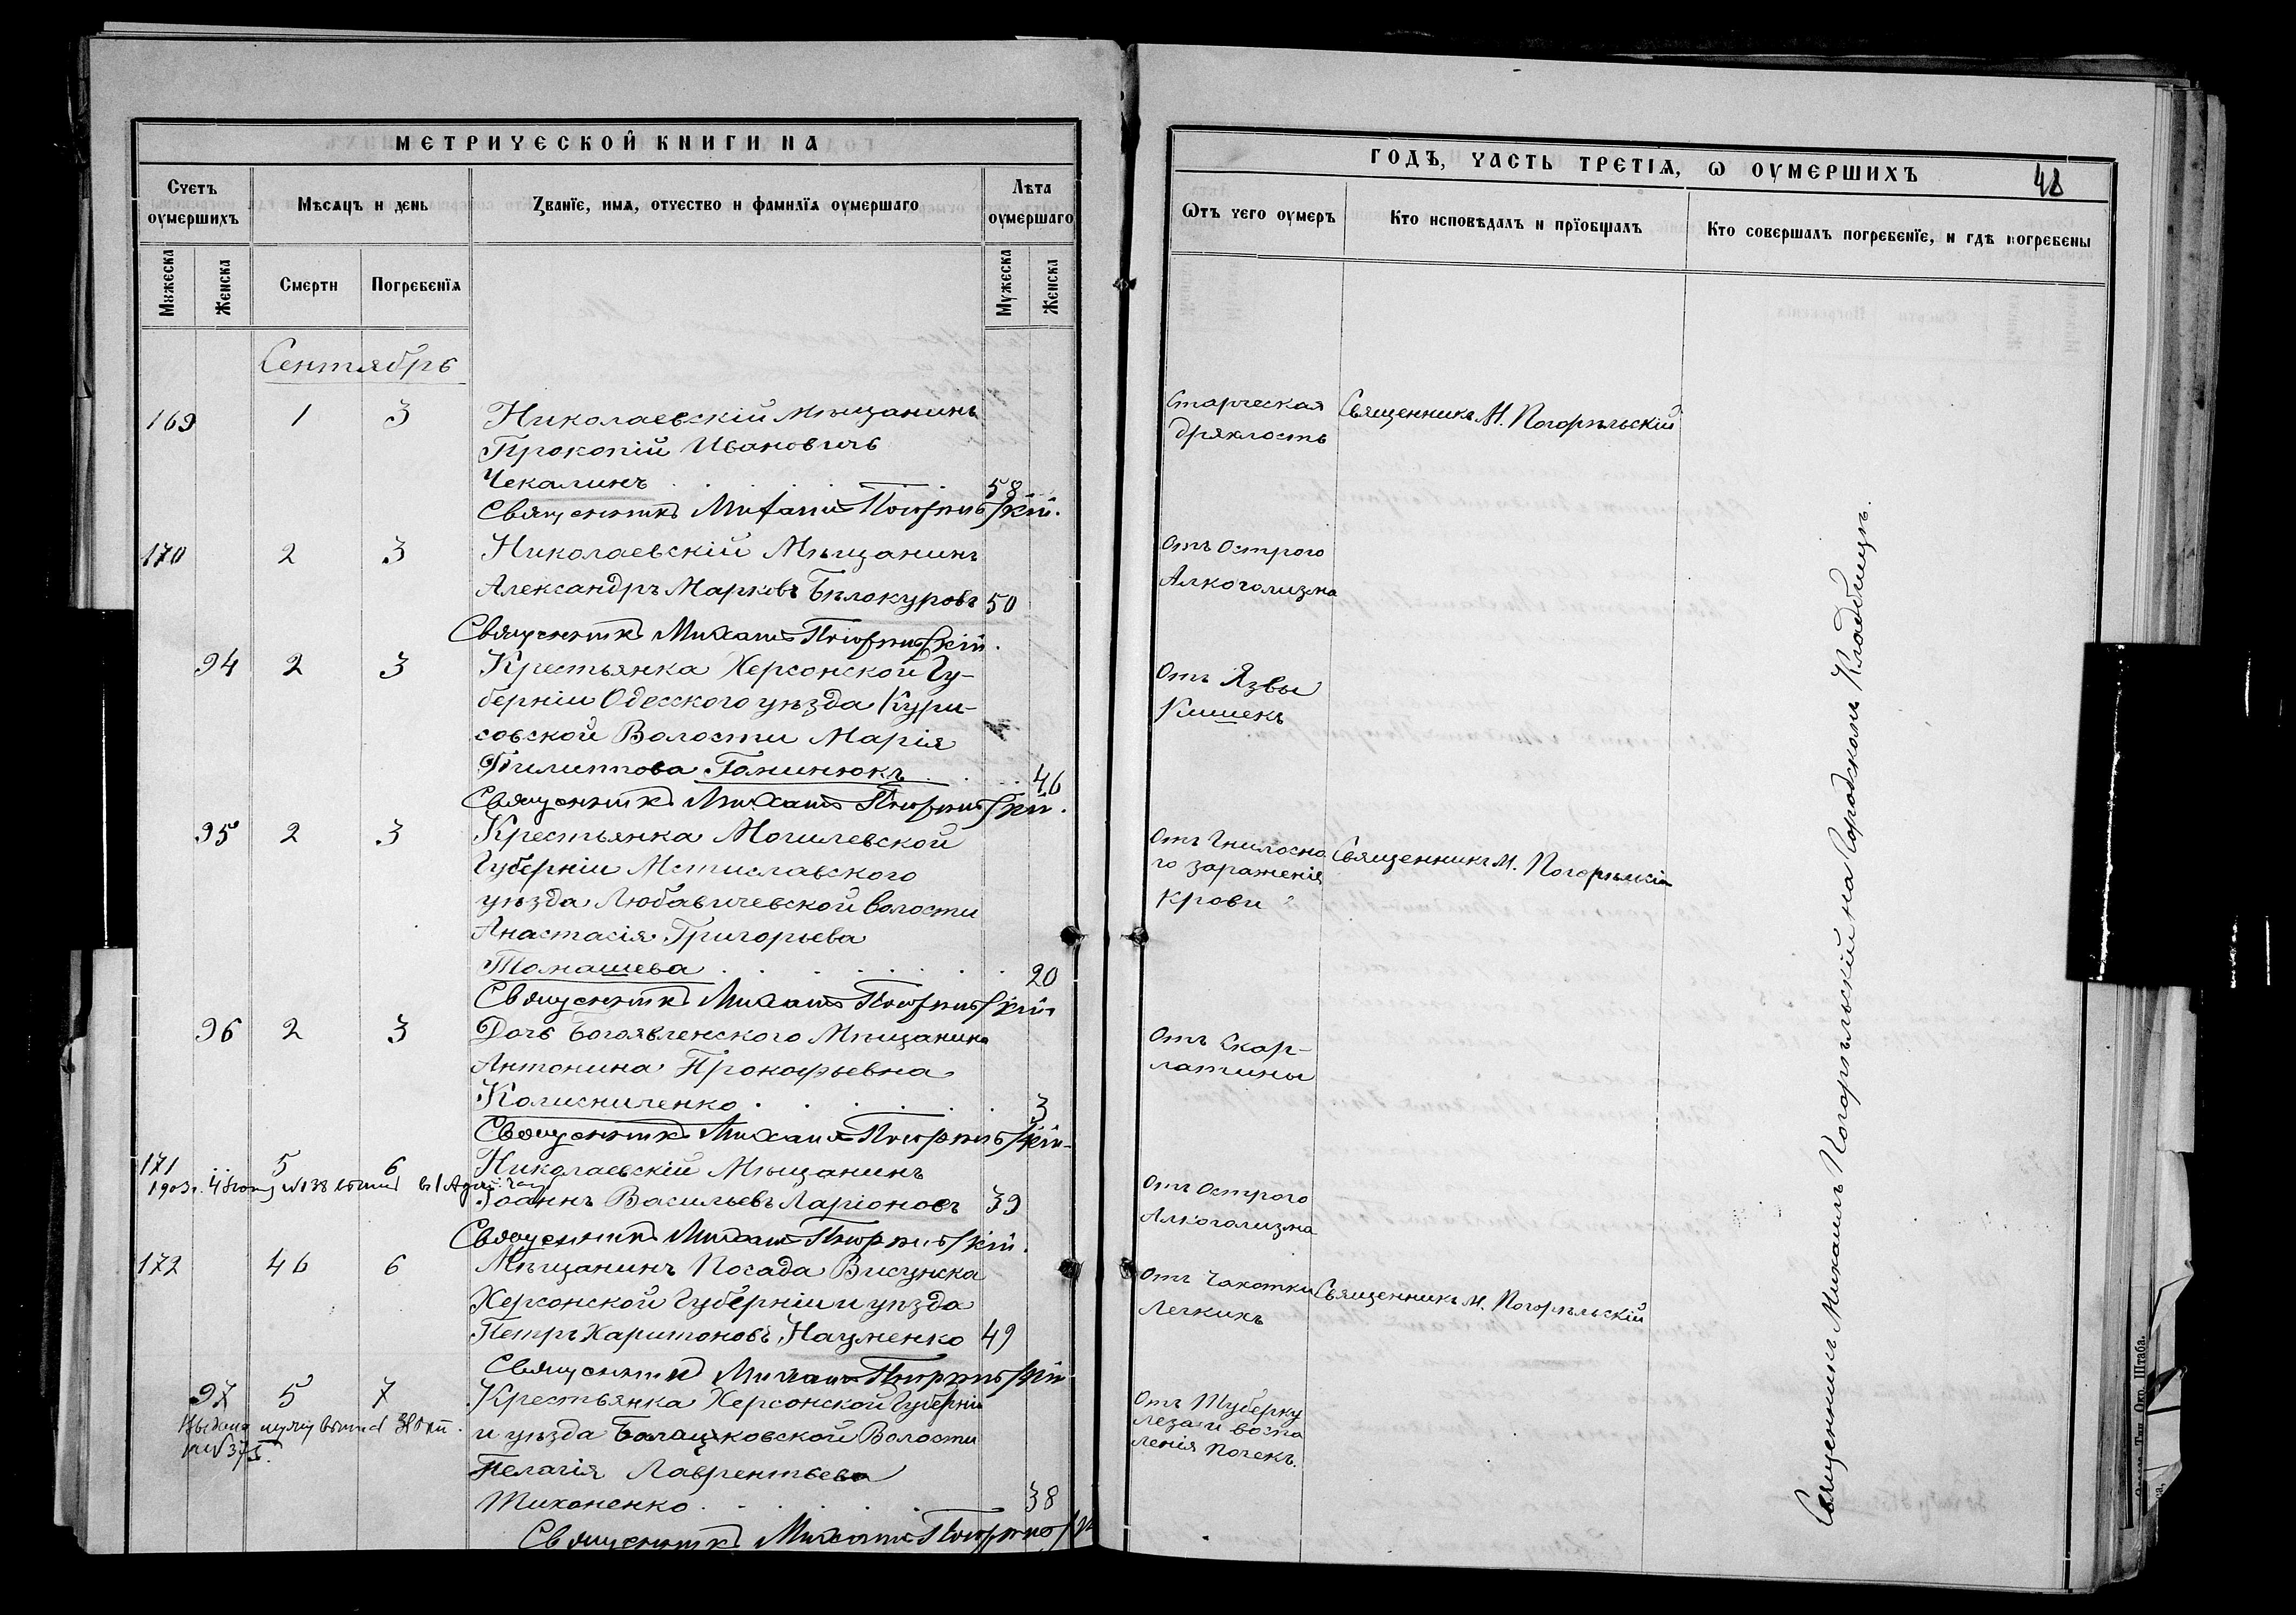 МЕТРИЧЕСКОЙ КНИГИ НА
Счетъ оумершихъ
Мѣсяцъ и день
Званїе, имя, отчество и фамилїя оумершаго
Лѣта оумершаго
Мужеска
Женска
Смерти
Погребенїя
Мужеска
Женска
Сентябрь
169 1 3 Николаевскій Мѣщанинъ
Прокопій Ивановичъ
Чекалинъ 58
Священникъ Михаилъ Погорѣльскій.
170 2 3 Николаевскій Мѣщанинъ
Александръ Марковъ Бѣлокуровъ 50
Священникъ Михаилъ Погорѣльскій.
94 2 3 Крестьянка Херсонской Гу-
берніи Одесскаго уѣзда Кури-
совской Волости Марія
Филиппова 46
Священникъ Михаилъ Погорѣльскій.
95 2 3 Крестьянка Могилевской
Губерніи Мстиславского
уѣзда Любавичевской волости
Анастасія Григорьева
Томашева 20
Священникъ Михаилъ Погорѣльскій
96 2 3 Дочь Богоявленского Мѣщанина
Антонина Прокофьевна
Колисниченко 3
Священникъ Михаилъ Погорѣльскій
171 5 6 Николаевскій Мѣщанинъ
1903г. №138
Іоаннъ Васильевъ Ларіоновъ 39
Священникъ Михаилъ Погорѣльскій.
172 4 6 6 Мѣщанинъ Посада Висунска
Херсонской Губерніи и уѣзда
Петръ Харитоновъ Науменко 49
Священникъ Михаилъ Погорѣльскій
97 5 7 Крестьянка Херсонской Губерніи
и уѣзда Балацковской Волости
Пелагія Лаврентьева
Тихоненко 38
Священникъ Михаилъ
ГОДЪ, ЧАСТЬ ТРЕТІЯ, Ѡ ОУМЕРШИХЪ
48
Ѿтъ чего оумеръ
Кто исповѣдалъ и прїобщалъ
Кто совершалъ погребенїе, и гдѣ погребены
Старческая Священникъ М. Погорѣльскій
дряхлость
Отъ Острого
Алкоголизма
Отъ Язвы
Кишекъ
Отъ Гнилосно Священникъ М. Погорѣльскій
го зараженія
Крови
Отъ Скар-
латины
Отъ Острого
Алкоголизма
Отъ Чахотки Священникъ М. Погорѣльскій
Легкихъ
Отъ Туберку
леза и воспа
ленія Почекъ.
Священникъ Михаилъ Погорѣльскій на Городскомъ Кладбищѣ.